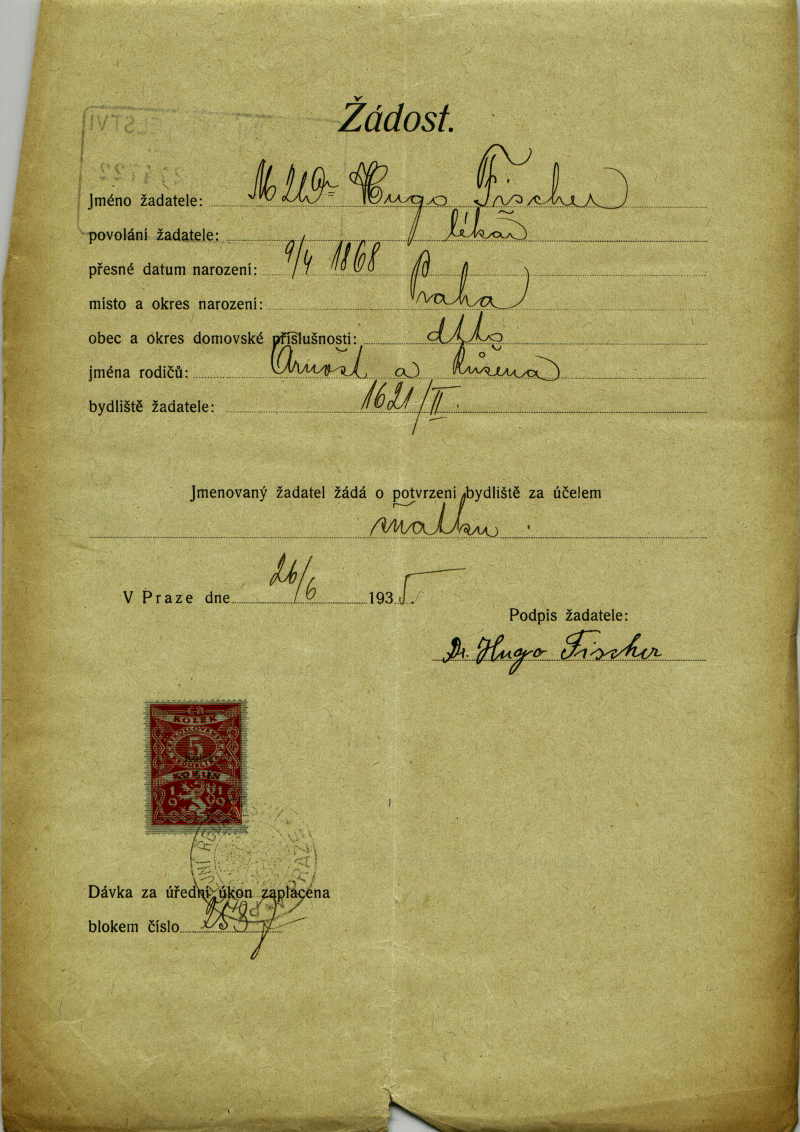 Žádost.
Jméno žadatele: MUDr Hugo Fischer
povolání žadatele: lékař
přesné datum narození: 9/4 1868
místo a okres narození: Praha
obec a okres domovské příslušnosti: dtto
jména rodičů: Arnošt a Růžena
bydliště žadatele: 1621/II.
Jmenovaný žadatel žádá o potvrzení bydliště za účelem
sňatku.
V Praze dne 26/6 1935.
Podpis žadatele:
Dr. Hugo Fischer
KOLEK
5
KORUN
Dávka za úřední úkon zaplacena
blokem číslo